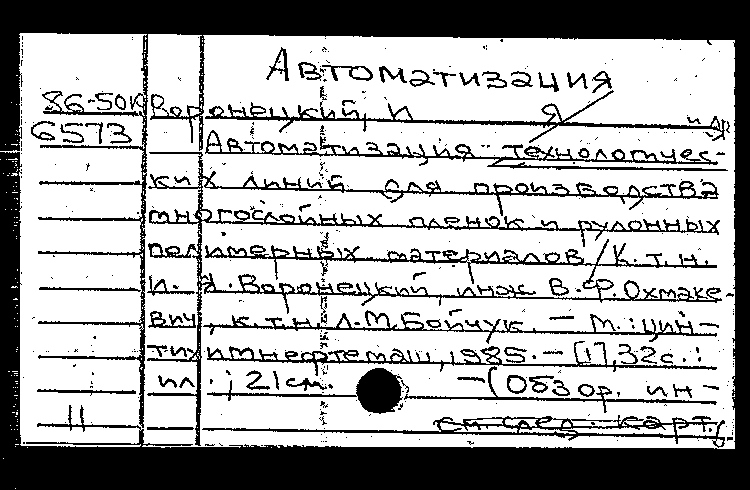 Автоматизация
86-50К Воронецкий, И Я и др
6573 Автоматизация технологичес-
ких линий для производства
многослойных пленок и рулонных
полимерных материалов / К.т.н.
И. Я. Воронецкий, инж В.Ф. Охмаке-
вич, к.т.н. Л.М. Бойчук. — М.: Цин-
тихимнефтемаш, 1985. — [1], 32 с.:
ил.; 21 см. — (Обзор. ин-
11 см. след. карт.